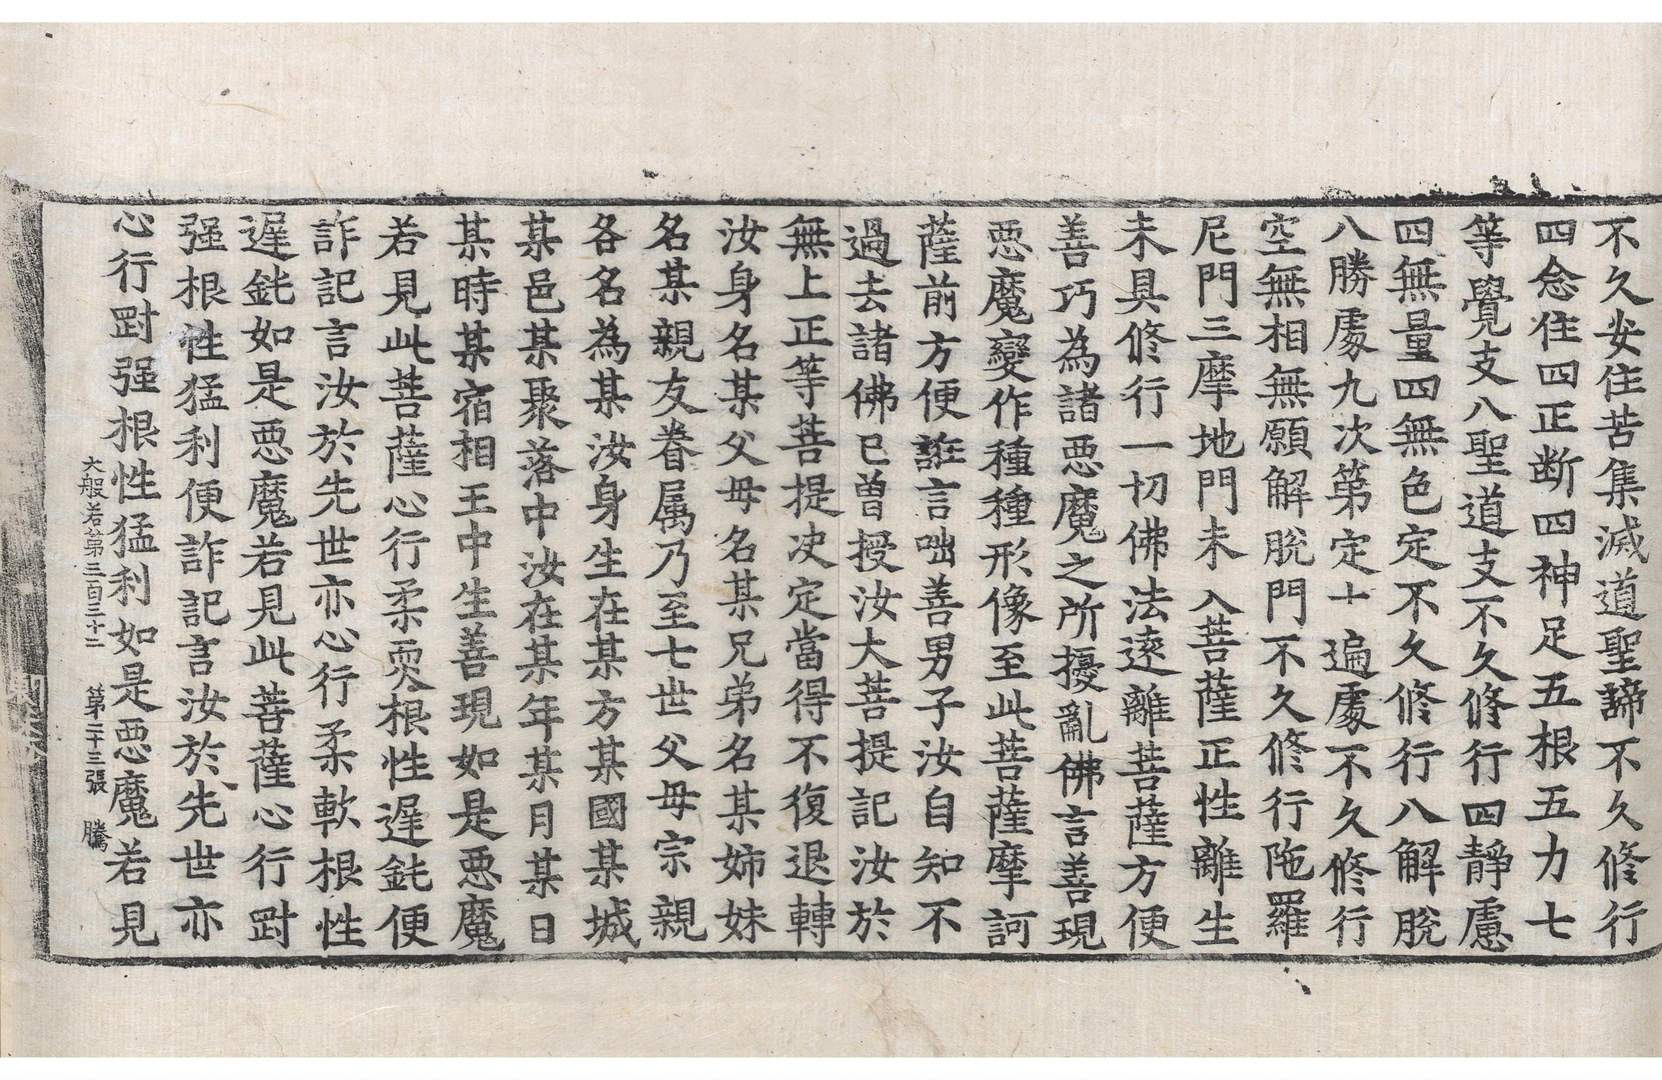 不久安住苦集滅道聖諦不久修行
四念住四正断四神足五根五力七
等覺支八聖道支不久修行四靜慮
四無量四無色定不久修行八解脫
八勝處九次第定十遍處不久修行
空無相無願解脫門不久修行陁羅
尼門三摩地門未入菩薩正性離生
未具修行一切佛法遠離菩薩方便
善巧為諸悪魔之所擾亂佛言善現
悪魔變作種種形像至此菩薩摩訶
薩前方便誑言咄善男子汝自知不
過去諸佛已曾授汝大菩提記汝於
無上正等菩提決定當得不復退轉
汝身名某父母名某兄弟名某姉妹
名某親友眷属乃至七世父母宗親
各名為某汝身生在某方某國某城
某邑某聚落中汝在某年某月某日
某時某宿相王中生善現如是悪魔
若見此菩薩心行柔耎根性遟鈍便
詐記言汝於先世亦心行柔軟根性
遟鈍如是悪魔若見此菩薩心行㓰
强根性猛利便詐記言汝於先世亦
心行㓰强根性猛利如是悪魔若見
大般若第三百三十二 第二十三張 騰